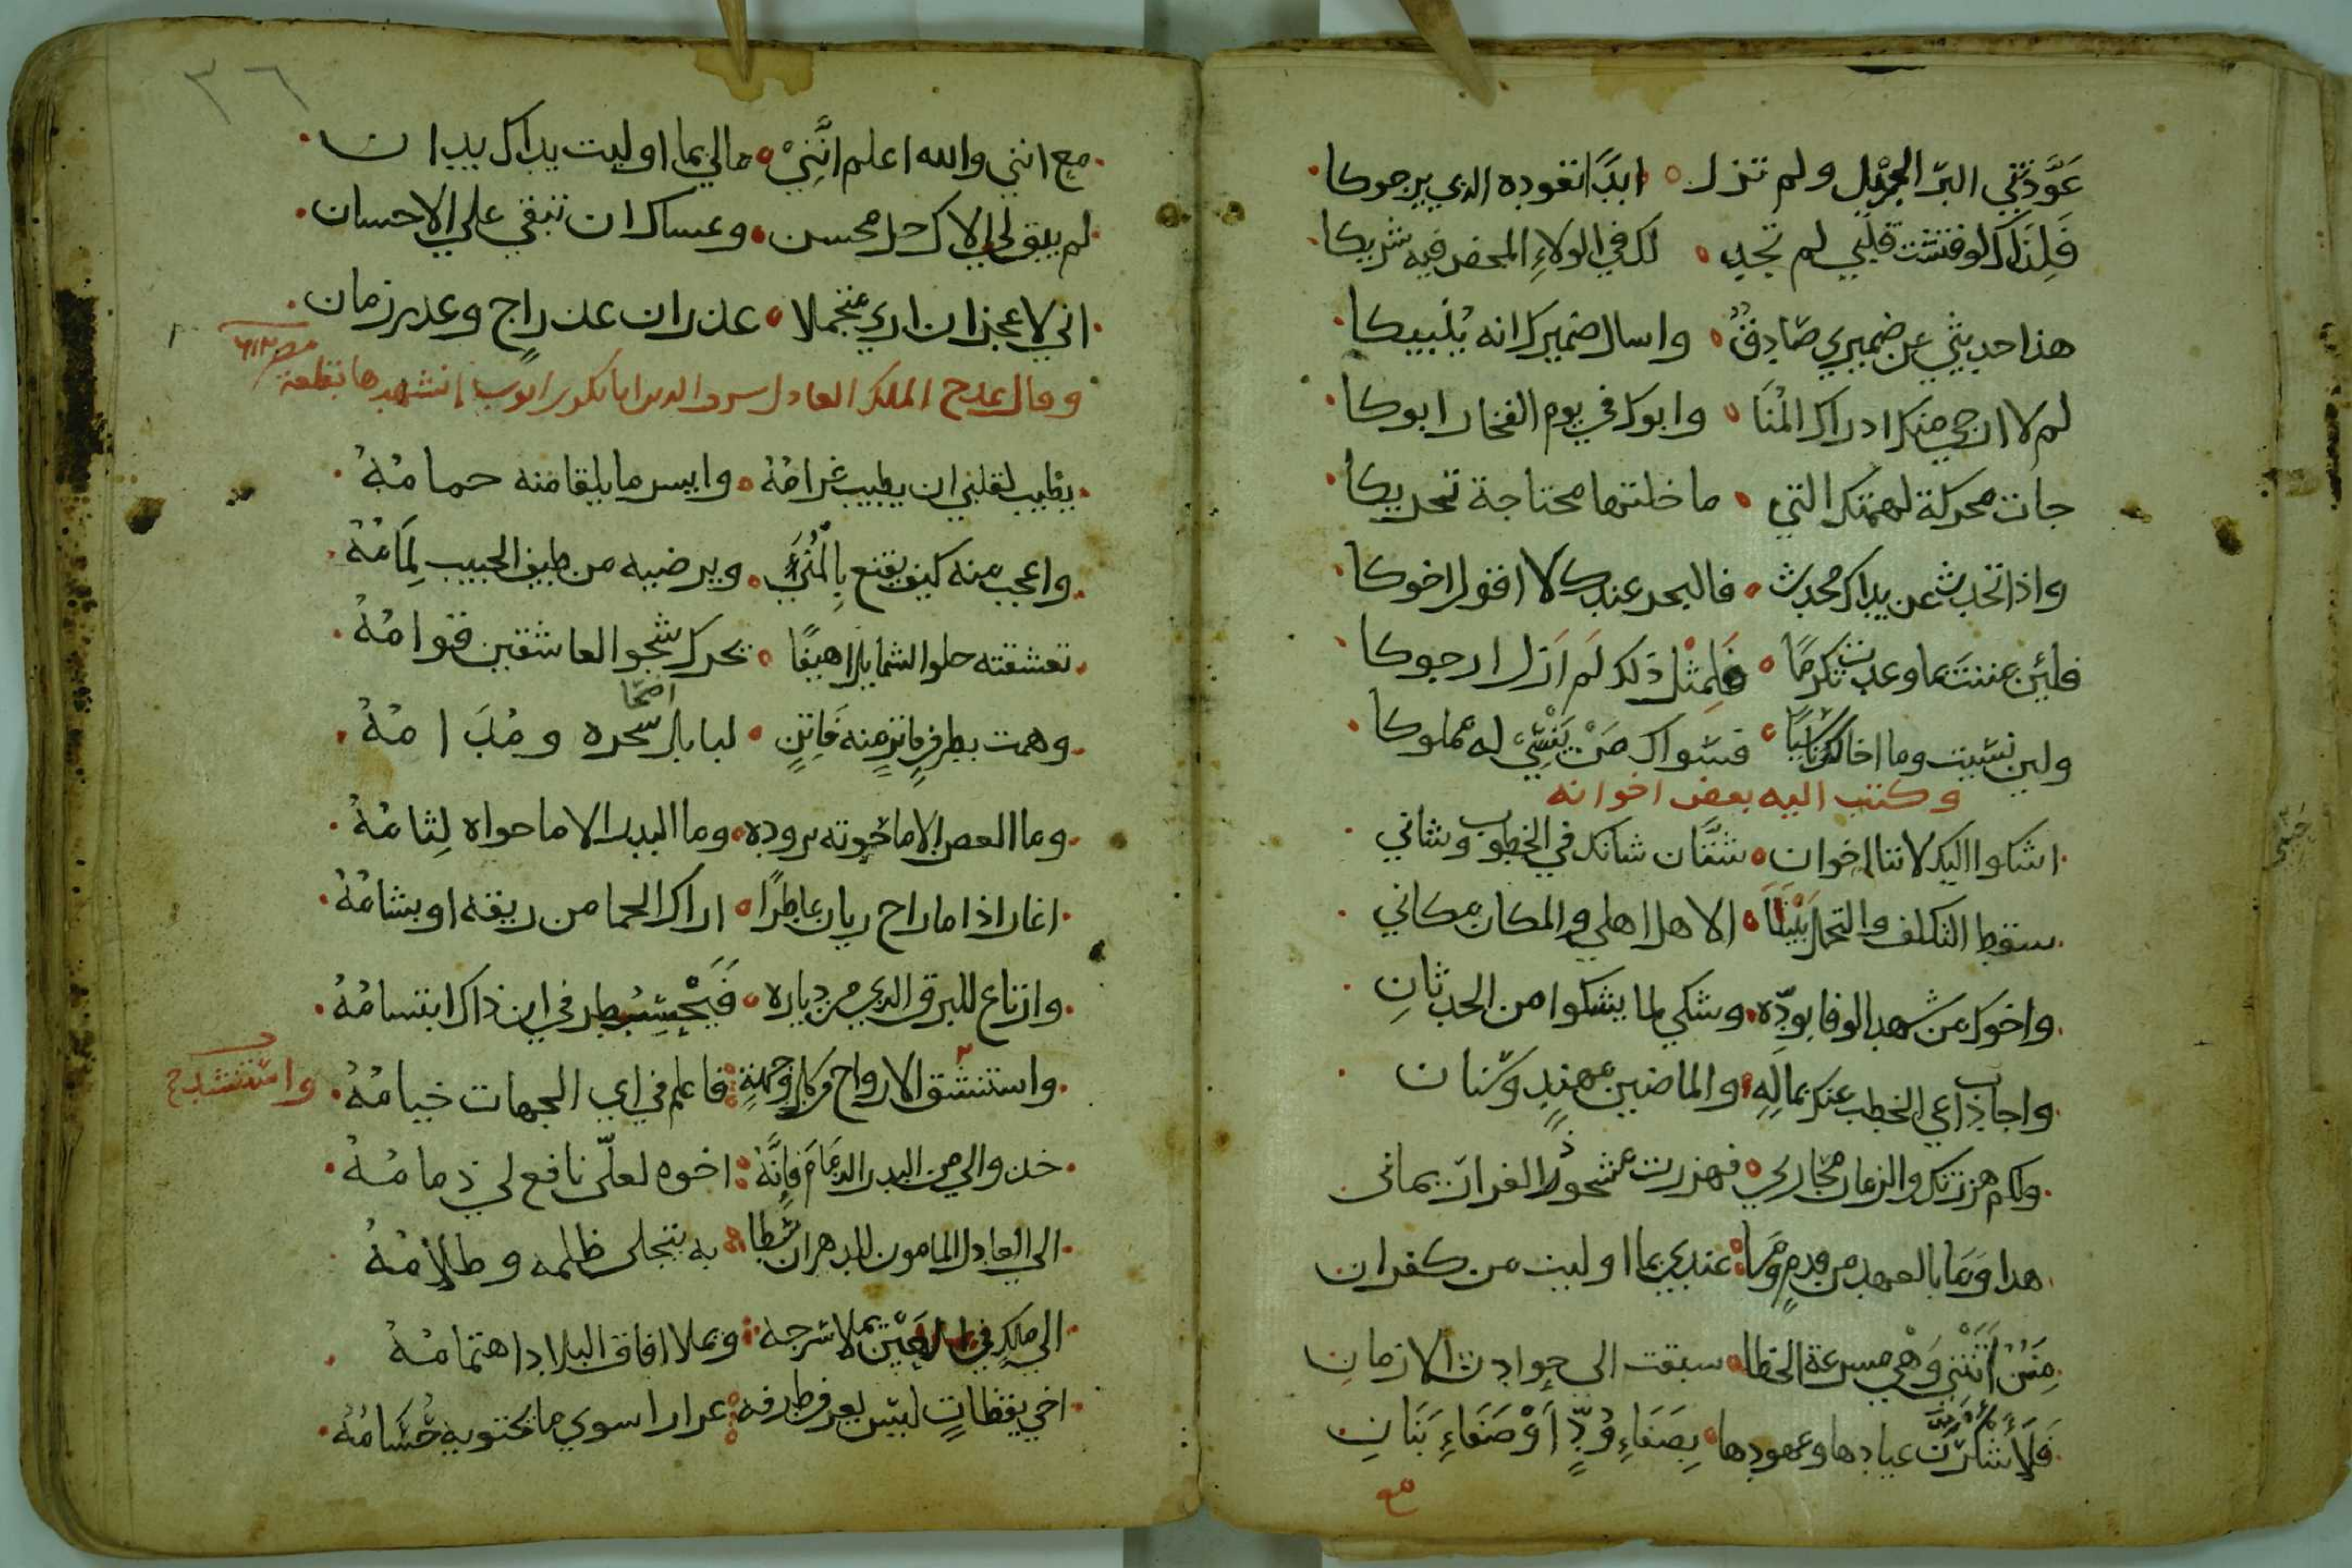 عَوَّدتَّني البرّ الجزيل ولم تزل ابدًا تعوده الذي يرجوكا
فَلِذَاك لو فتشت قلبي لم تجد لك في الولاءِ المحض فيه شريكا
هذا حديثي عن ضميري صَادِقٌ واسال ضميرك انه يُنْبيكا
لم لا ارجي منك ادراك المُنَا وابوك في يوم الفخار ابوكا
جات محركة لهمتك التي ما خلتها محتاجة تحريكا
واذا تحدث عن يداك محدث فالبحر عندك لا اقول اخوكا
فلئِن عننتَ بما وعدت تكرمًا فَلِمِثْل ذلك لَم اَزل ارجوكا
ولين نسّيت وما اخالك ناسّيًا فسّواك مَنْ يَنْسّيَ له مملوكا
وكتب اليه بعض اخوانه
اشكوا اليك لاننا اخوان شتَّان شانك في الخطوب وشاني
سقط التكلف والتجمل بَيْنَنَا الاهل اهلي والمكان مكاني
واخوك من شهد الوفا بودّه وشكي لما يشكوا من الحدثانِ
واجاب داعي الخطب عنك بمالِهِ والماضيين مهندٍ وسّنان
ولكم هززتك والزمان محاربي فهززت مشحوذ الغرار يماني
هدا وَمَا بالعهد من قدمٍ وَمَا عندي بما اوليت من كفران
مِنَنٌ اَتَتْنِي وَهْي مسرعة الخطا سبقت الي حوادث الازمانِ
فَلَأَشكُرَنَّ عبادها وعهودها بِصَفَاءِ وُدٍّ اَوْ صَفَاءِ بَنَانِ
مع
٣٦
مع انني والله اعلم انَّنِيْ مالي بما اوليت يداك يدان
لم يبق لي الاك خل محسن وعساك ان تبقي علي الاحسان
اني لاعجز ان اري متجملا عند ران عند راجٍ وعدر زمان
وقال يمدح الملك العادل سيف الدين ابا بكر بن ايوب انشدها بقلعة
مصر
يطيب لقلبي ان يطيب غرامُهُ وايسر ما يلقا منه حمامُهُ
واعجب منه كيف يقنع بِالْمُنَيَ ويرضيه من طيف الحبيب لِمَامُهُ
تعشقته حلو الشمايل اهيفًا يحرك شجو العاشقين قوامُهُ
وهمت بطرفٍ فاترٍ منه فَاتِنٍ لبابل سّحره ومُدَامُهُ
اضحا
وما الغصن الا ما حَوته بروده وما البدر الا ما حواه لِثامُهُ
اغار اذا ما راح ريان عاطرًا اراك الحما من ريقه او بشامُهُ
وارتاع للبرق الدي من دياره في اين ذاك ابتسامُهُ
واستنشق الارواح من كل وجهةٍ فاعلم في اي الجهات خيامُهُ
واسّتنشد
خدوا لي من البدر الذِمَامَ فَاِنَّهُ اخوه لعلّي نافع لي ذمامُهُ
الي العادل المامون للدهر ان سّطا به يتجلى ظلمه وظلامُهُ
الي ملكٍ في العَيْن يملا سّرجه ويملا افاق البلاد اهتمامُهُ
اخي يقظاتٍ ليسّ يعرف طرفه غرارا سوي ما يحتويه حُسَامُهُ